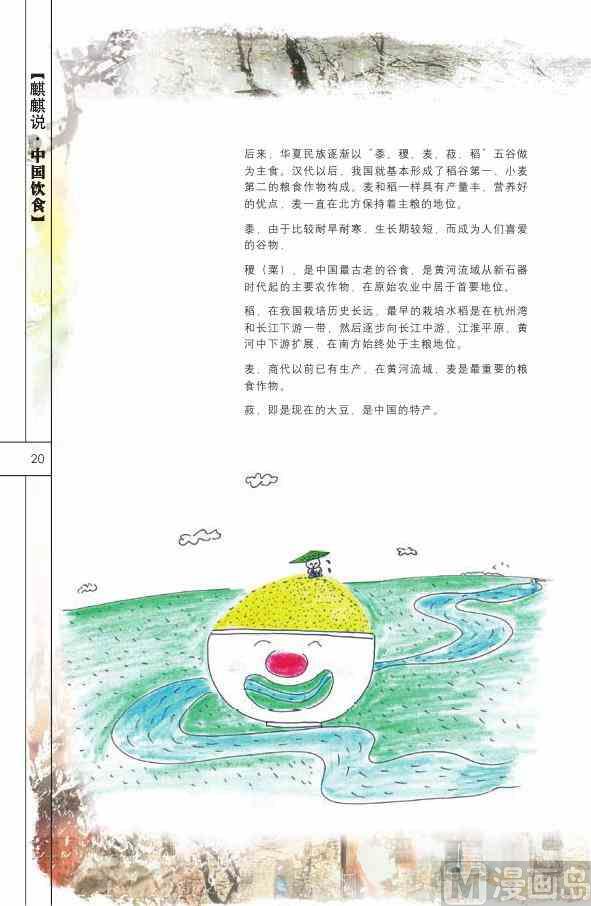 【麒麟说·中国饮食】
后来，华夏民族逐渐以“黍、稷、麦、菽、稻”五谷做
为主食。汉代以后，我国就基本形成了稻谷第一、小麦
第二的粮食作物构成。麦和稻一样具有产量丰、营养好
的优点，麦一直在北方保持着主粮的地位。
黍，由于比较耐旱耐寒，生长期较短，而成为人们喜爱
的谷物。
稷（粟），是中国最古老的谷食，是黄河流域从新石器
时代起的主要农作物，在原始农业中居于首要地位。
稻，在我国栽培历史长远，最早的栽培水稻是在杭州湾
和长江下游一带，然后逐步向长江中游、江淮平原、黄
河中下游扩展，在南方始终处于主粮地位。
麦，商代以前已有生产，在黄河流域，麦是最重要的粮
食作物。
菽，即是现在的大豆，是中国的特产。
20
M漫画岛